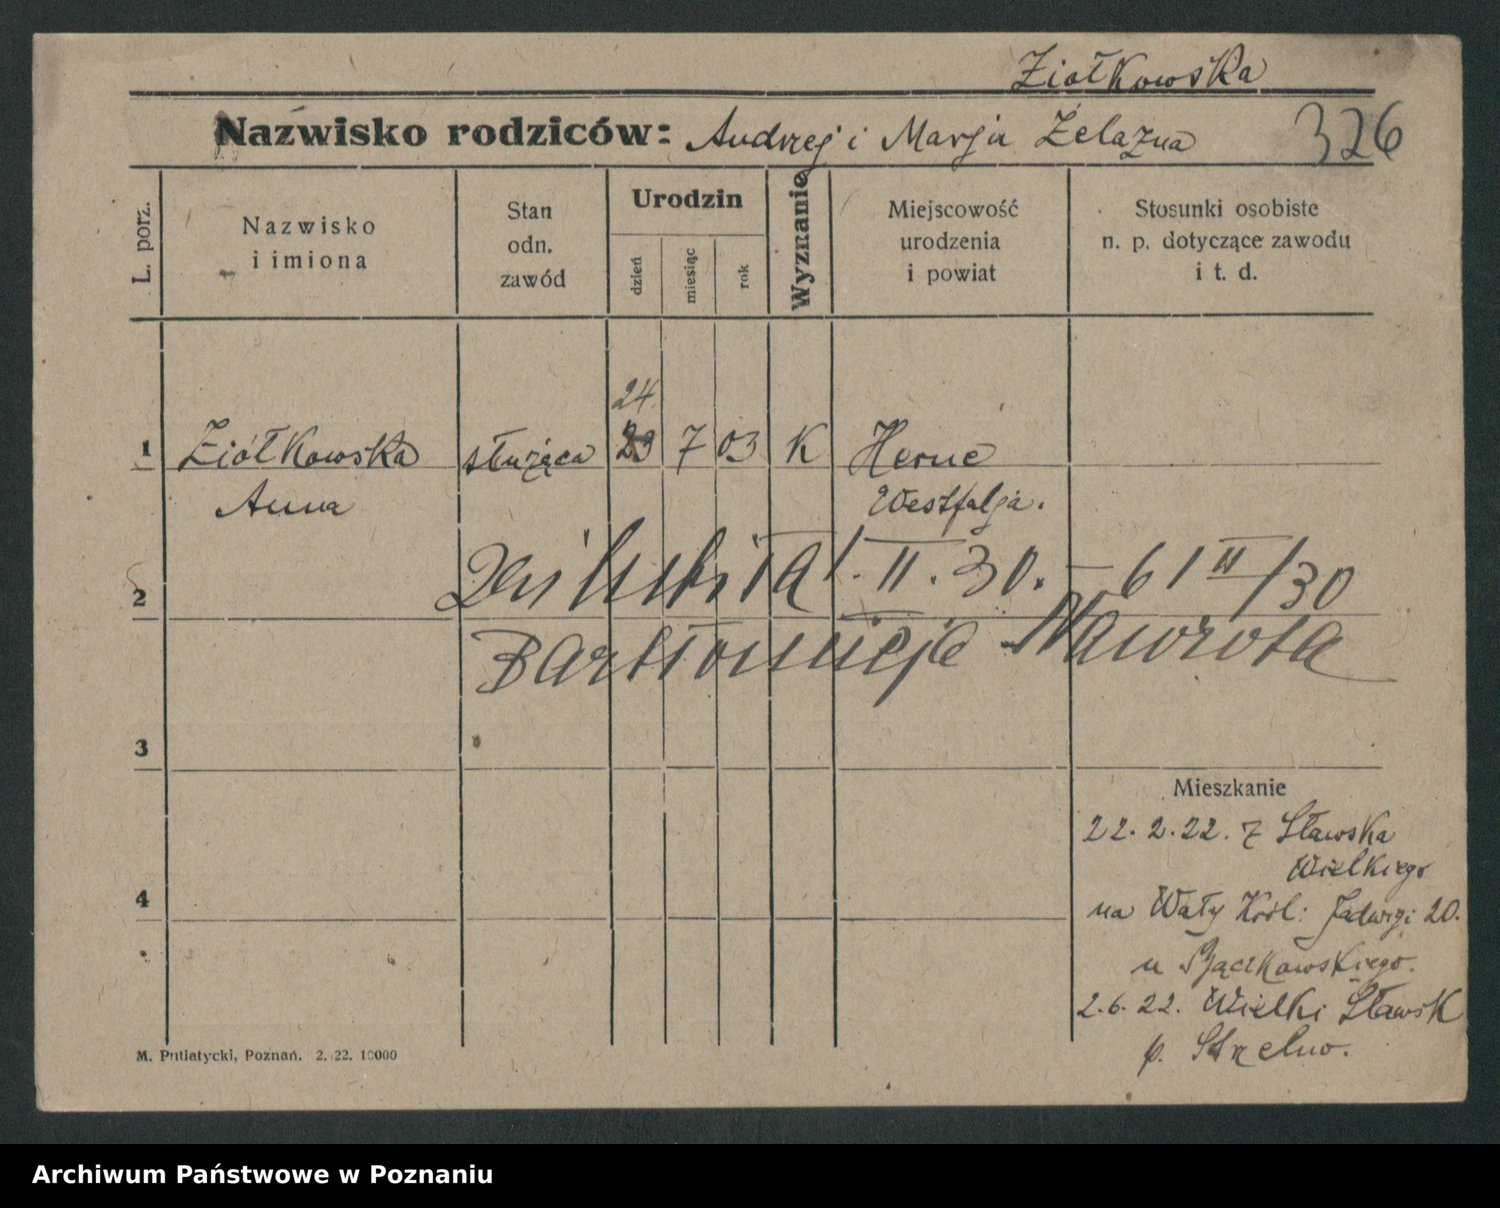 Ziołkowska
Nazwisko rodziców: Andrzej i Marja Żelazna 326
L. porz.
Nazwisko
i imiona
Stan
odn.
zawód
Urodzin
dzień
miesiąc
rok
Wyznanie
Miejscowość
urodzenia
i powiat
Stosunki osobiste
n. p. dotyczące zawodu
i t. d.
24.
1 Ziółkowska służąca 23 7 03 K Herne
Anna Westfalja.
II. 30. – 61 III/30
2
Bartłomieja Nawrota
3
Mieszkanie
22. 2. 22. z Sławska
Wielkiego
4
na Wały Król: Jadwigi 20.
u Bączkowskiego.
2. 6. 22. Wielki Sławsk
p. Strzelno.
M. Putiatycki, Poznań. 2. 22. 10000
Archiwum Państwowe w Poznaniu